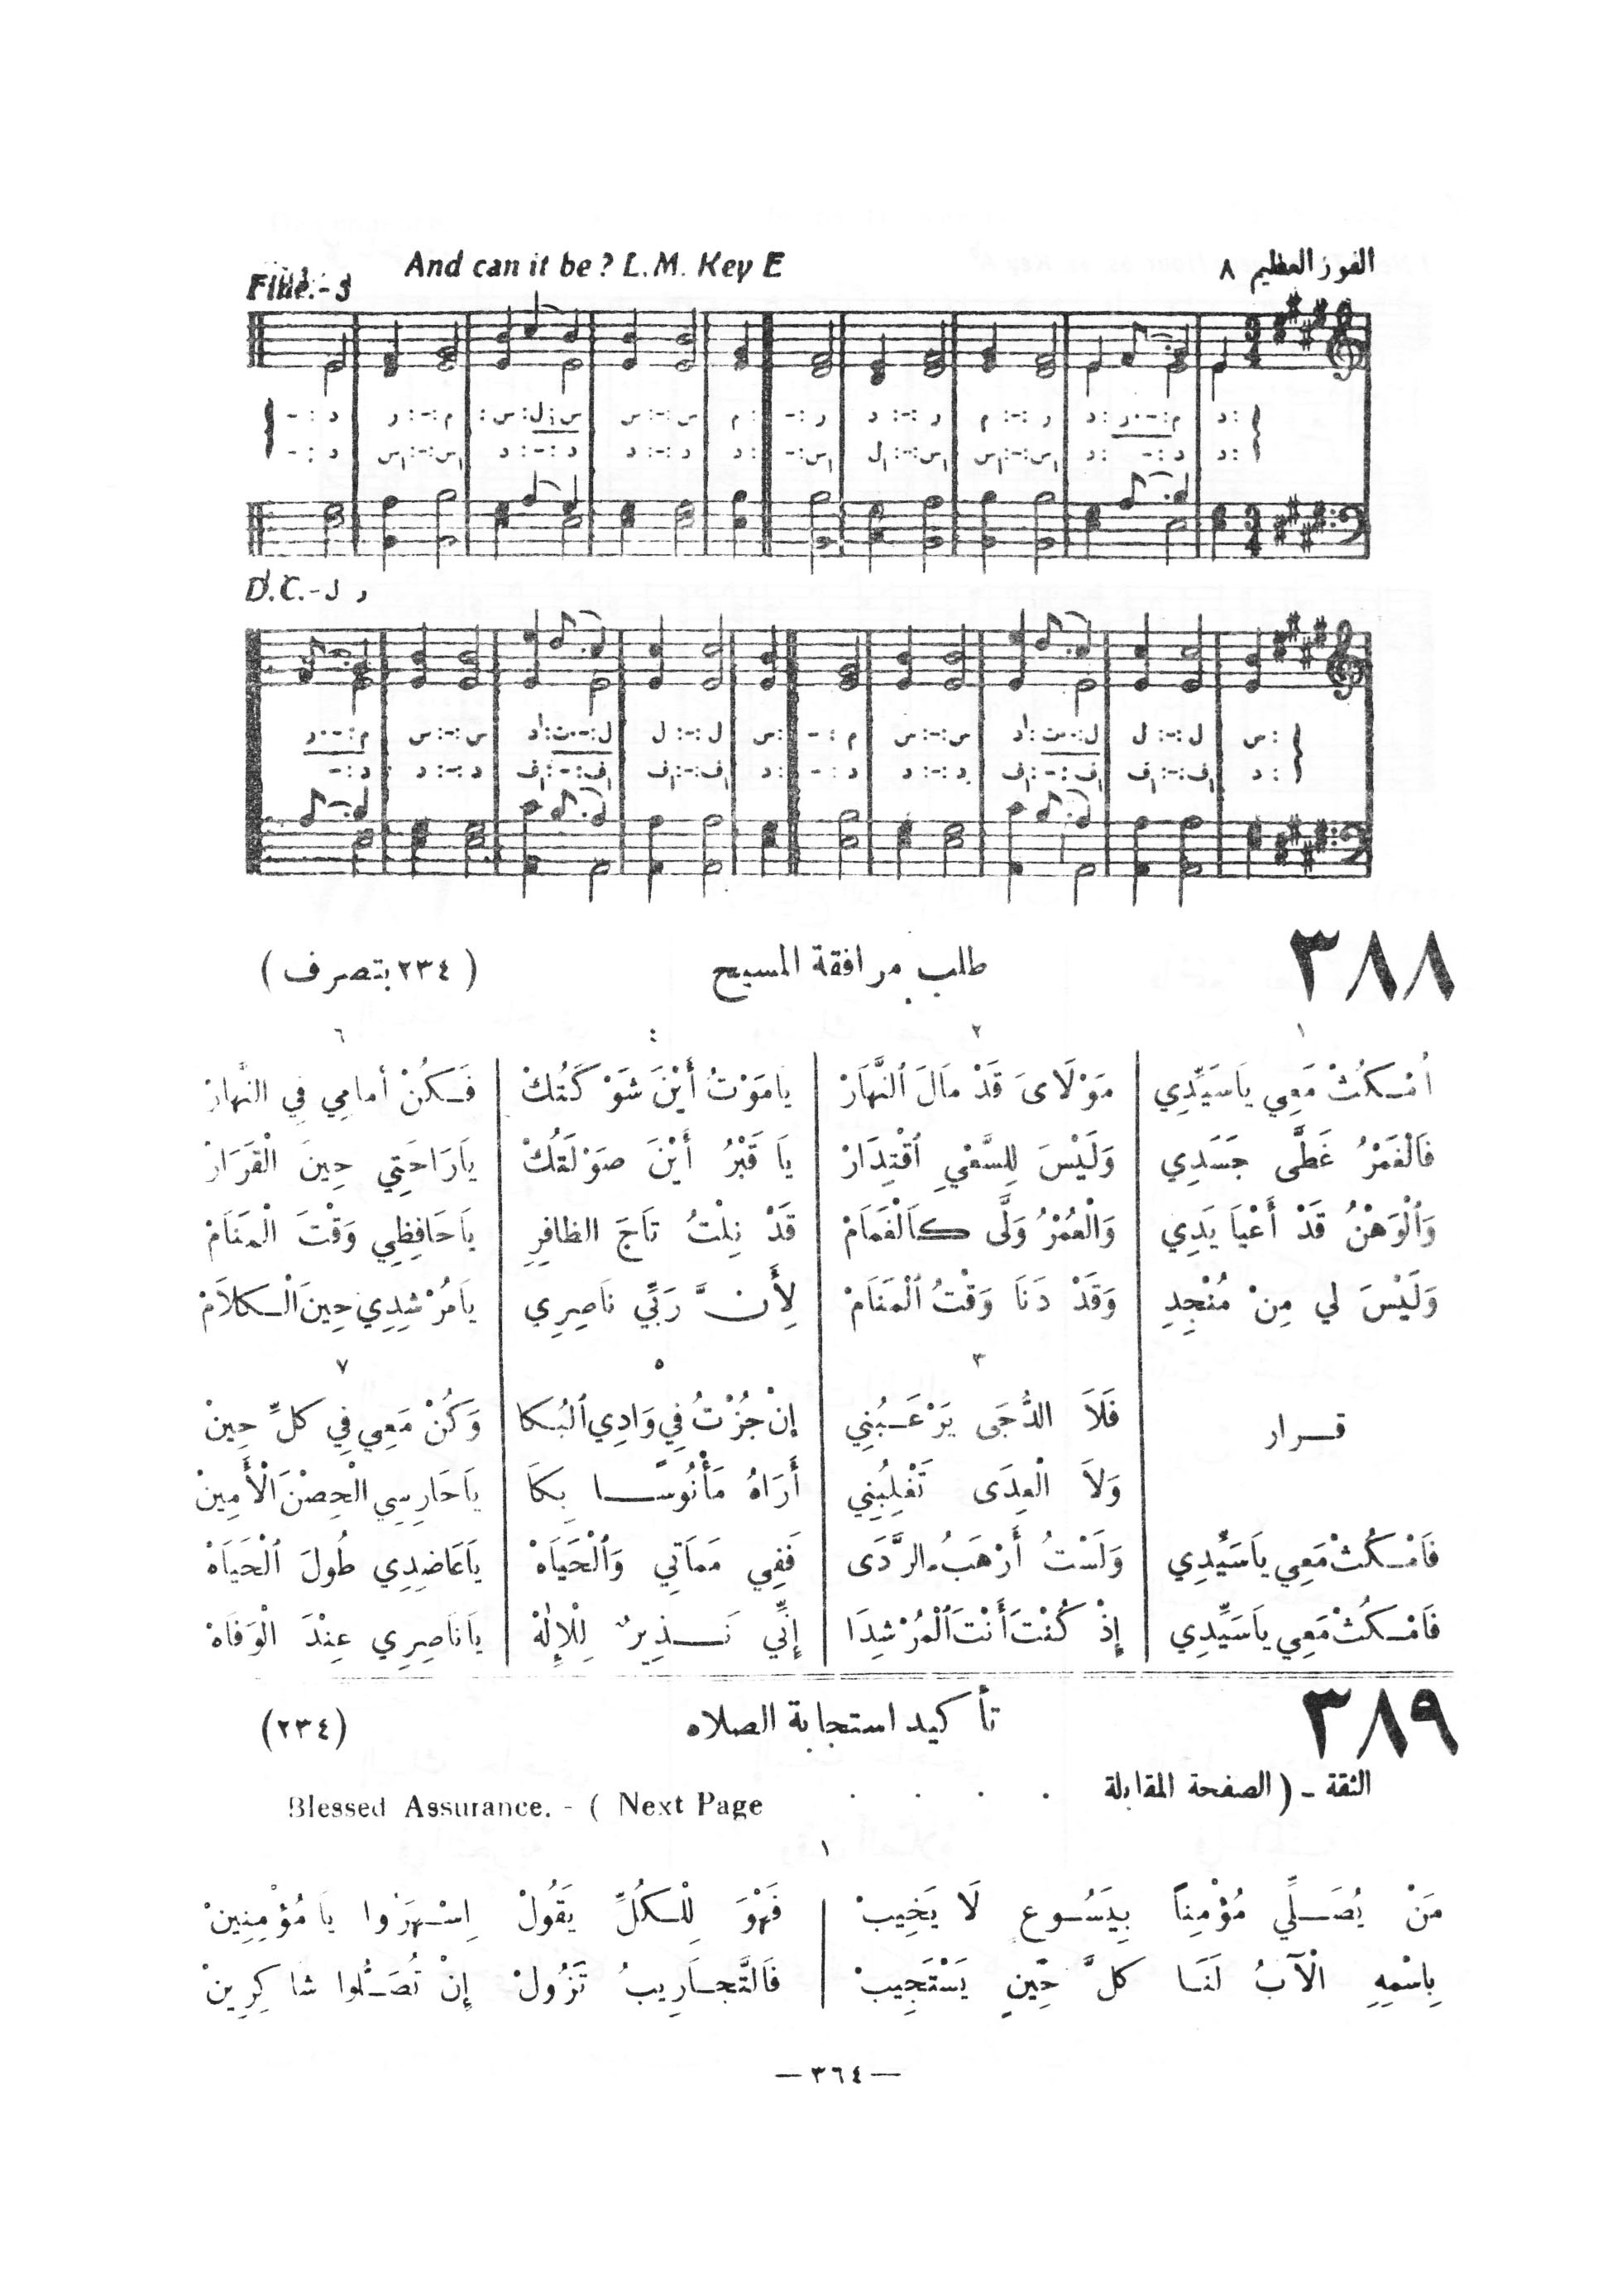 الفوز العظيم ٨ And can it be? L. M. Key E
Fine.-
D.C.-
٣٨٨ طلب مرافقة المسيح (٢٣٤ بتصرف)
١
اُمْكُثْ مَعِي يَاسَيِّدِي
فَالْغَمْرُ غَطَّى جَسَدِي
وَٱلْوَهْنُ قَدْ أَعْيَا يَدِي
وَلَيْسَ لي مِنْ مُنْجِدِ
قرار
فَامْكُثْ مَعِي يَاسَيِّدِي
فَامْكُثْ مَعِي يَاسَيِّدِي
٢
مَوْلَاىَ قَدْ مَالَ ٱلنَّهَارْ
وَلَيْسَ لِلسَّعْيِ ٱقْتِدَارْ
وَالْعُمْرُ وَلَّى كَالْغَمَامْ
وَقَدْ دَنَا وَقْتُ ٱلْمَنَامْ
٣
فَلَا الدُّجَى يَرْعَبُنِي
وَلَا الْعِدَى تَغْلِبُنِي
وَلَسْتُ أَرْهَبُ الرَّدَى
إِذْ كُنْتَ أَنْتَ ٱلْمُرْشِدَا
٤
يَامَوْتُ أَيْنَ شَوْكَتُكْ
يَا قَبْرُ أَيْنَ صَوْلَتُكْ
قَدْ نِلْتُ تَاجَ الظافِرِ
لِأَنَّ رَبِّي نَاصِرِي
٥
إِنْ جُزْتُ فِي وَادِي ٱلبُكَا
أَرَاهُ مَأْنُوسًا بِكَا
فَفِي مَمَاتِي وَٱلْحَيَاهْ
إِنِّي نَذِيرٌ لِلْإِلٰهْ
٦
فَكُنْ أمامِي فِي النَّهارْ
يَارَاحَتِي حِينَ الْقَرَارْ
يَاحَافِظِي وَقْتَ الْمَنَامْ
يَامُرْشِدِي حِينَ الْكَلَامْ
٧
وَكُنْ مَعِي فِي كلِّ حِينْ
يَاحَارِسِي الْحِصْنَ الْأَمِينْ
يَاعَاضِدِي طُولَ ٱلْحَيَاهْ
يَانَاصِرِي عِنْدَ الْوَفَاهْ
٣٨٩ تأكيد استجابة الصلاه (٢٣٤)
الثقة - (الصفحة المقابلة . . . . Blessed Assurance. - ( Next Page
١
مَنْ يُصَلِّي مُؤْمِناً بِيَسُوعِ لَا يَخِيبْ فَهْوَ لِلْكُلِّ يَقُولْ اِسْهَرُوا يَا مُؤْمِنِينْ
بِاسْمِهِ الْآبُ لَنَا كلَّ حِينٍ يَسْتَجِيبْ فَالتَّجَارِيبُ تَزُولْ إِنْ تُصَلُّوا شاكِرِينْ
— ٣٦٤ —